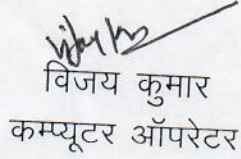 विजय कुमार
कम्प्यूटर ऑपरेटर